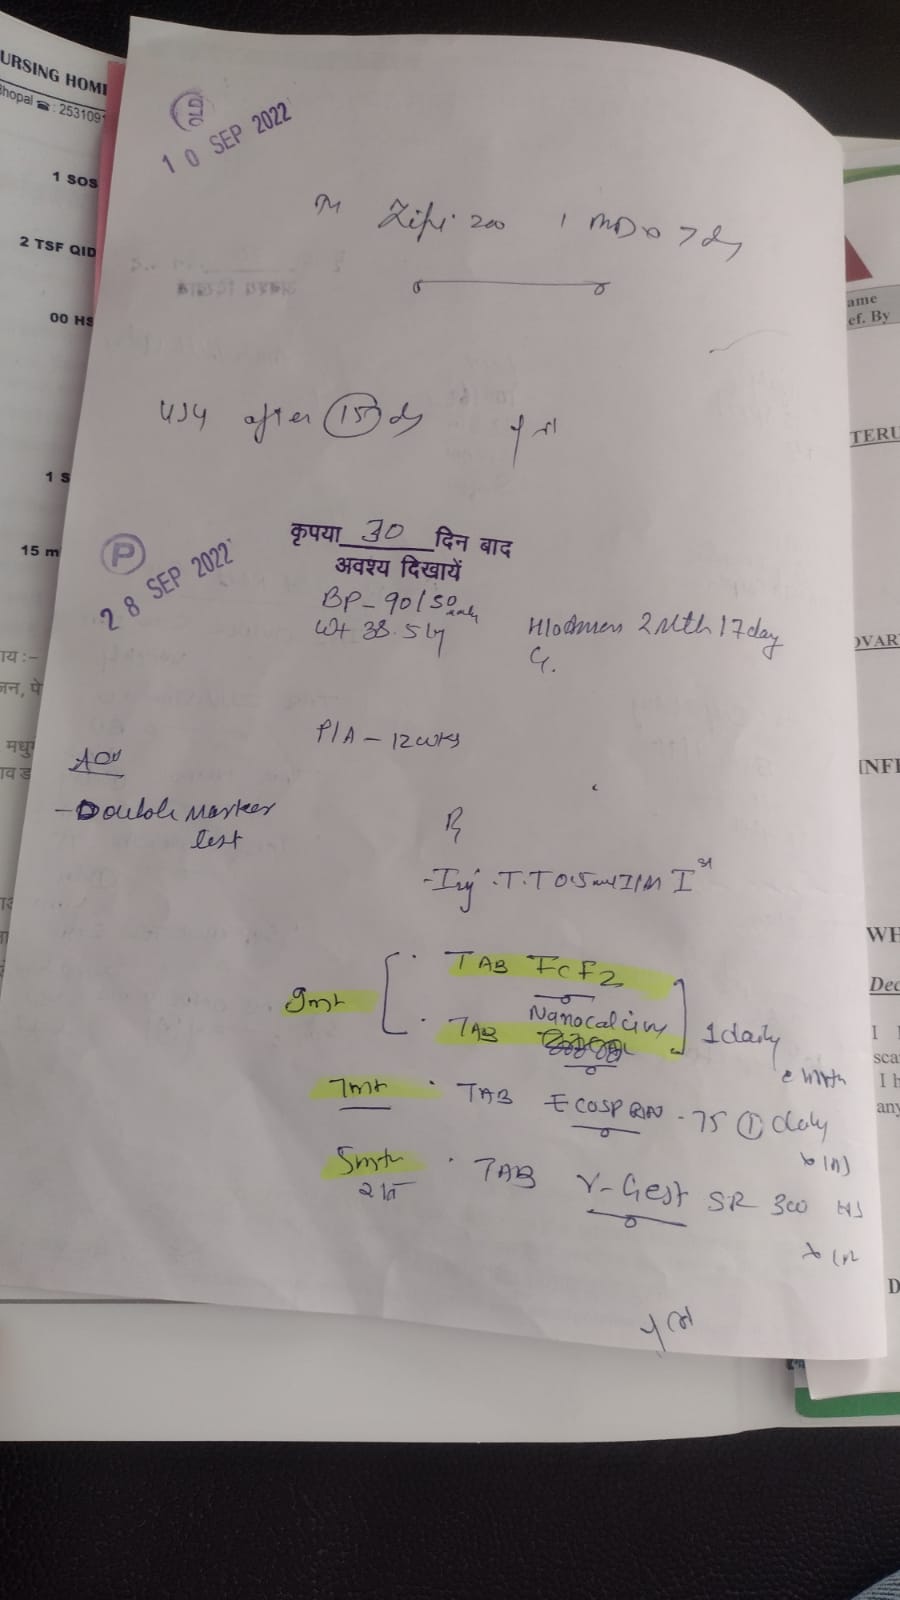 URSING HOME
Bhopal ☎ : 253109
1 SOS
2 TSF QID
00 HS
1 S
15 m
OLD
10 SEP 2022
Zifi 200 1 BD x 7 dy
USG after 15 dy
P
28 SEP 2022
कृपया 30 दिन बाद
अवश्य दिखायें
BP - 90/50
Wt 38.5 kg
H/o Amen 2 Mth 17 day
P/A - 12 wks
Adv
- Double Marker
test
Rx
- Inj. T.T 0.5 ml I/M Ist
9mt
TAB FCF2
TAB Nanocalcium
1 daily
7mt
TAB ECOSPRIN - 75 1 daily
5mth
TAB V-Gest SR 300 HS
ame
ef. By
TERU
OVAR
INFI
WH
Dec
I
sca
I h
any
D